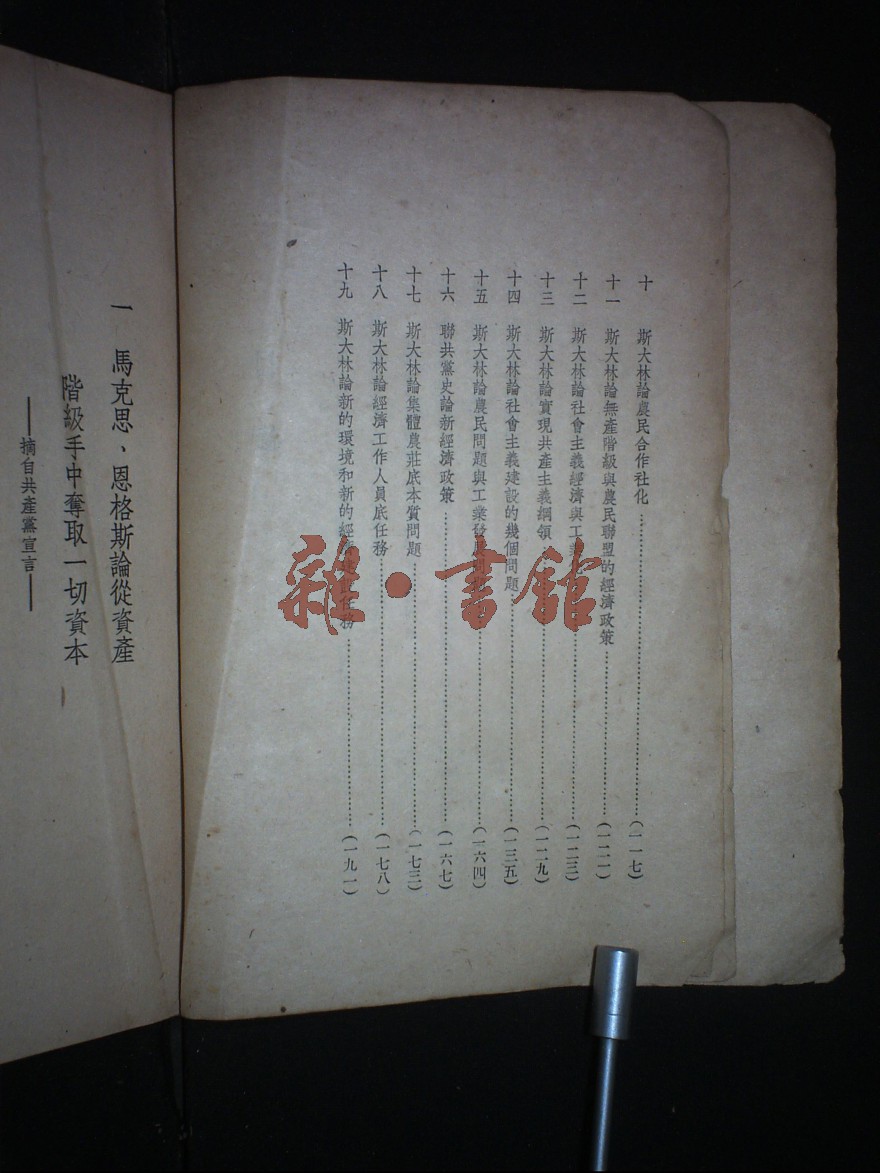 十 斯大林論農民合作社化……………(一一七)
十一 斯大林論無產階級與農民聯盟的經濟政策……………
十二 斯大林論社會主義經濟與工業……………(一二三)
十三 斯大林論實現共產主義綱領……………(一二九)
十四 斯大林論社會主義建設的幾個問題……………(一三五)
十五 斯大林論農民問題與工業發展問題……………(一六四)
十六 聯共黨史論新經濟政策……………(一六七)
十七 斯大林論集體農莊底本質問題……………(一七三)
十八 斯大林論經濟工作人員底任務……………(一七八)
十九 斯大林論新的環境和新的經濟建設任務……………(一九一)
雜·書館
一 馬克思、恩格斯論從資產
階級手中奪取一切資本
——摘自共產黨宣言——